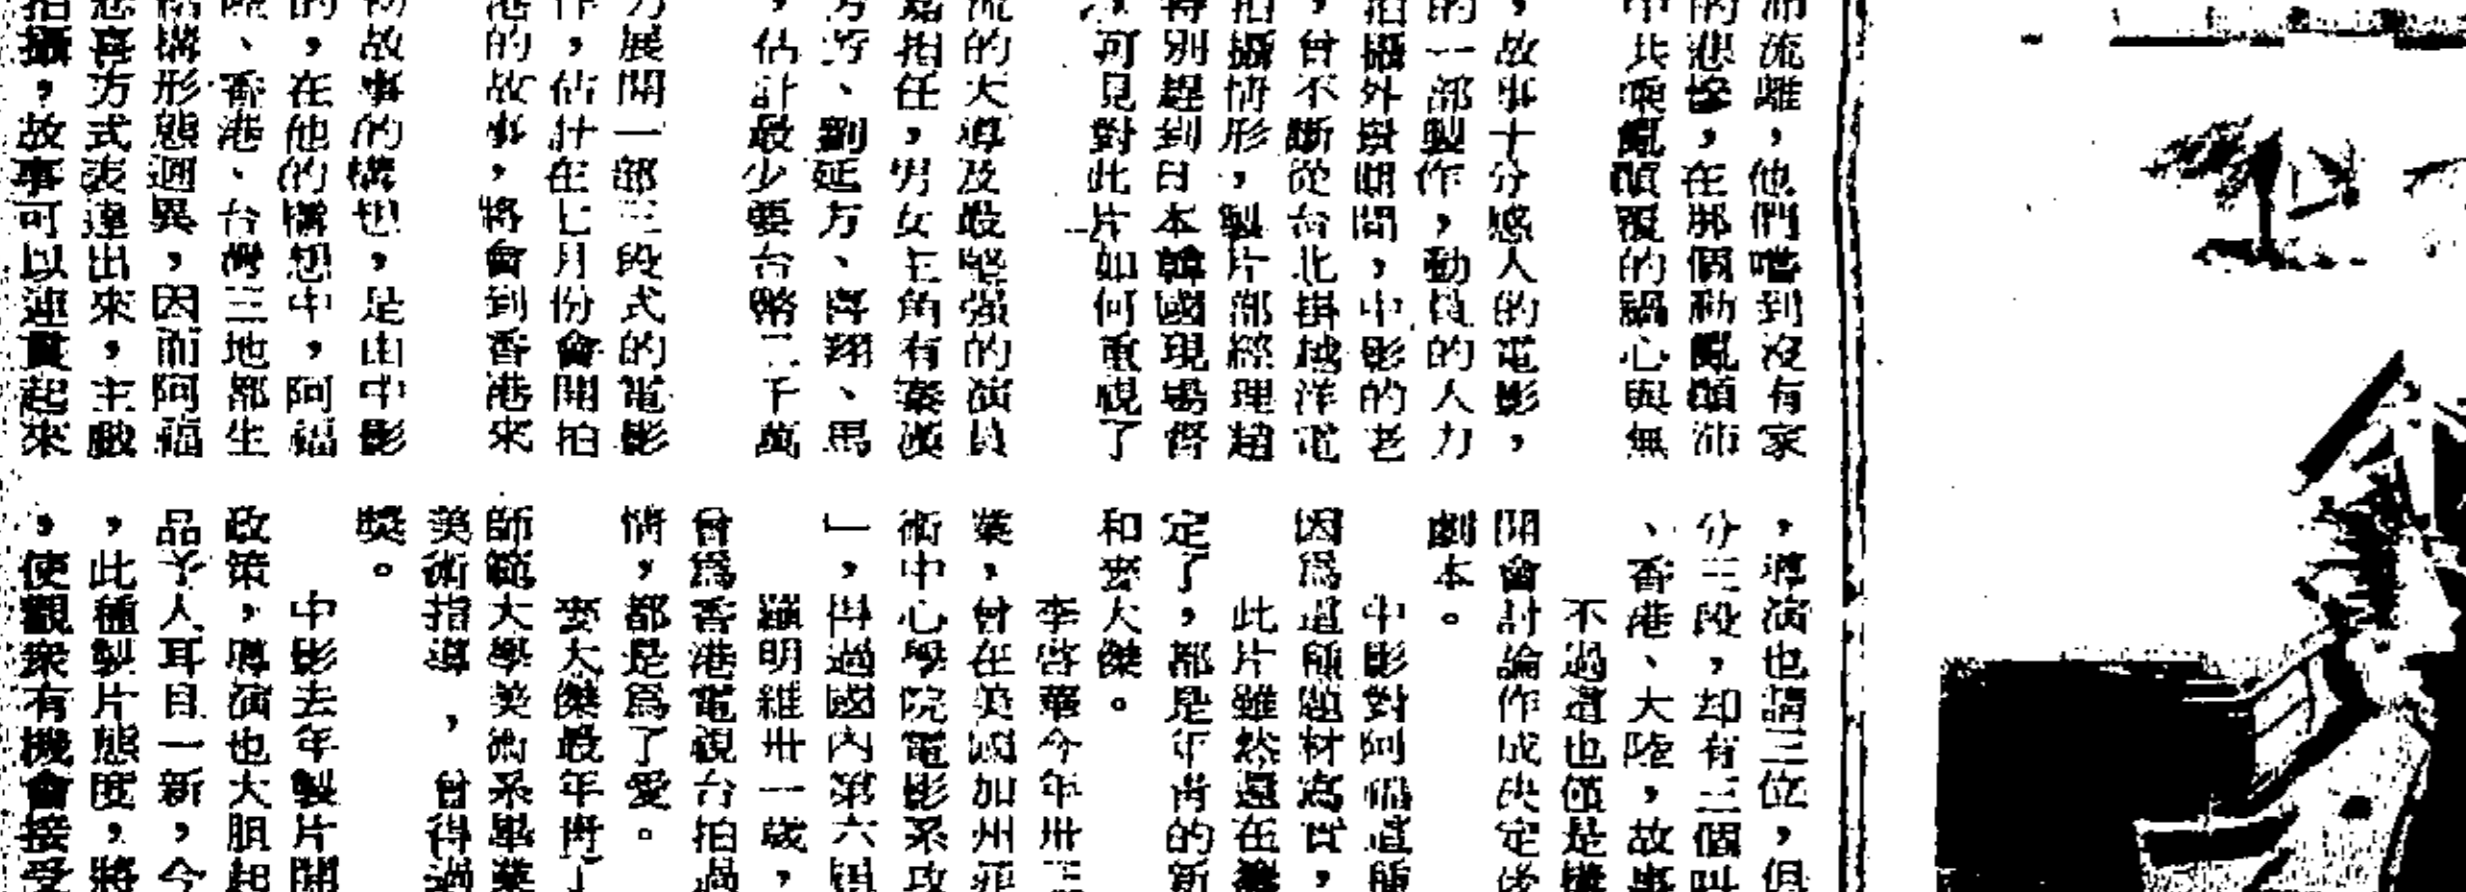 沛流離，他們嚐到沒有家
的悲慘，在那個動亂顛沛
中共喪亂顛覆的禍心與無
，故事十分感人的電影，
的一部製作，動員的人力
拍攝外景期間，中影的老
，曾不斷從台北掛越洋電
拍攝情形，製片部經理趙
特別趕到日本韓國現場督
，可見對此片如何重視了
流的大導及最堅强的演員
指任，男女主角有秦漢
芳芳、劉延方、喜翔、馬
，估計最少要台幣二千萬
力展開一部三段式的電影
作，估計在七月份會開拍
港的故事，將會到香港來
故事的構想，是由中影
的，在他的構想中，阿福
陸、香港、台灣三地都生
結構形態迥異，因而阿福
悲喜方式表達出來，主戲
拍攝，故事可以連貫起來
，導演也請三位，但
分三段，却有三個
、香港、大陸，故事
不過這也僅是構
開會討論作成決定後
劇本。
中影對阿福這種
因爲這種題材寫實，
此片雖然還在籌
定了，都是年青的新
和麥大傑。
李啓華今年卅三
業，曾在美國加州
術中心學院電影系攻
」，得過國內第六
羅明維卅一歲，
曾爲香港電視台拍過
情，都是爲了愛。
麥大傑最年
師範大學美術系畢業
美術指導，曾得過
獎。
中影去年製片開
政策，導演也大胆起
品予人耳目一新，今
，此種製片態度，將
，使觀衆有機會接受